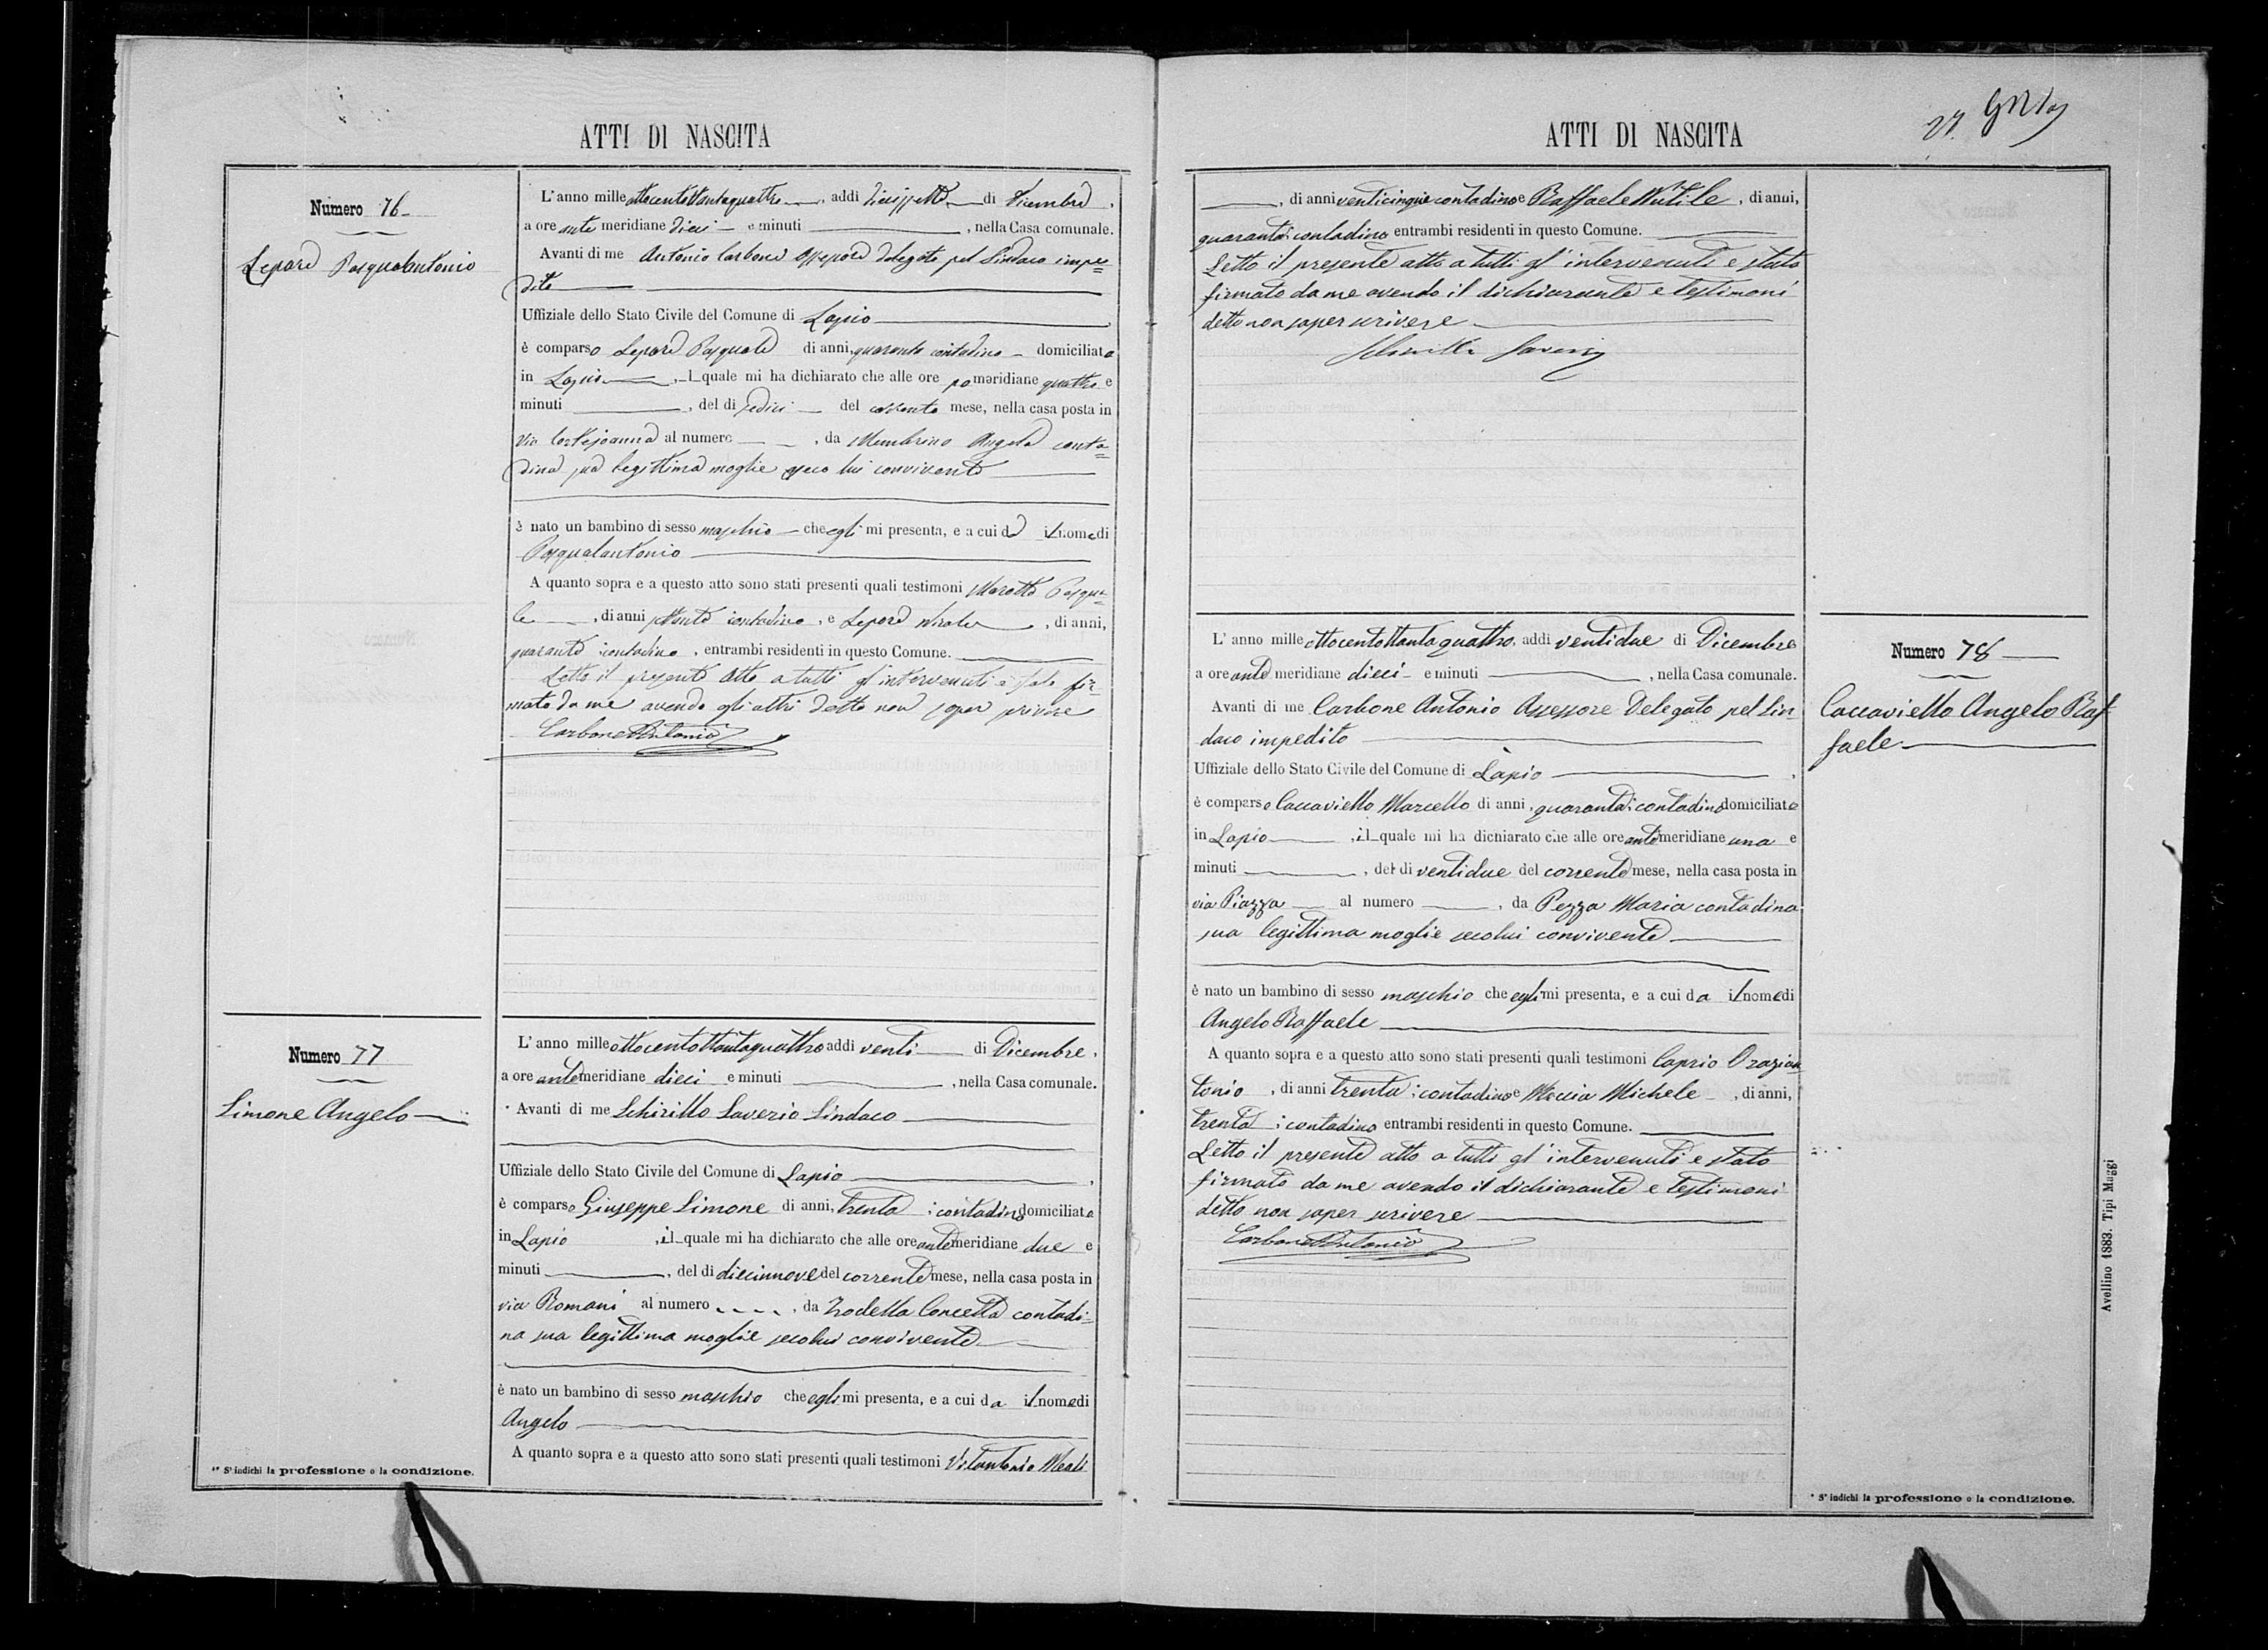 ATTI DI NASCITA
Numero 76
Lepore Pasqualantonio
L'anno mille ottocentottantaquattro, addì diciassette di Dicembre,
a ore ante meridiane dieci e minuti , nella Casa comunale.
Avanti di me Antonio Carbone Assessore delegato pel Sindaco impe=
dito
Uffiziale dello Stato Civile del Comune di Lapio
è comparso Lepore Pasquale di anni, quaranta contadino domiciliato
in Lapio, il quale mi ha dichiarato che alle ore pomeridiane quattro e
minuti , del dì sedici del corrente mese, nella casa posta in
via al numero , da Membrino Angela conta=
dina sua legittima moglie seco lui convivente
è nato un bambino di sesso maschio che egli mi presenta, e a cui dà il nome di
Pasqualantonio
A quanto sopra e a questo atto sono stati presenti quali testimoni Marotta Pasqua=
le, di anni contadino, e Lepore Nicola, di anni,
quaranta contadino, entrambi residenti in questo Comune.
Letto il presente atto a tutti gl'intervenuti è stato fir=
mato da me avendo gli altri detto non saper scrivere
Carbone Antonio
Numero 77
Simone Angelo
L'anno mille ottocentottantaquattro addì venti di Dicembre,
a ore antemeridiane dieci e minuti , nella Casa comunale.
Avanti di me Schirillo Saverio Sindaco
Uffiziale dello Stato Civile del Comune di Lapio,
è comparso Giuseppe Simone di anni, trenta; contadino domiciliato
in Lapio, il quale mi ha dichiarato che alle ore antemeridiane due e
minuti , del dì diecinnove del corrente mese, nella casa posta in
via Romani al numero , da Concetta contadi=
na sua legittima moglie secolui convivente
è nato un bambino di sesso maschio che egli mi presenta, e a cui da il nome di
Angelo
A quanto sopra e a questo atto sono stati presenti quali testimoni Vitantonio Meoli
*° S'indichi la professione o la condizione.
ATTI DI NASCITA
27.
, di anni venticinque contadino e Raffaele Nutile, di anni,
quaranta; contadino entrambi residenti in questo Comune.
Letto il presente atto a tutti gl'intervenuti e stato
firmato da me avendo il dichiarante e testimoni
detto non saper scrivere
Schirillo Saverio
Numero 78
Caccaviello Angelo Raf
faele
L'anno mille ottocentottantaquattro, addì ventidue di Dicembre
a ore ante meridiane dieci e minuti , nella Casa comunale.
Avanti di me Carbone Antonio Assessore Delegato pel Sin
daco impedito
Uffiziale dello Stato Civile del Comune di Lapio,
è comparso Caccaviello Marcello di anni, quaranta; contadino domiciliato
in Lapio, il quale mi ha dichiarato che alle ore antemeridiane una e
minuti , del dì ventidue del corrente mese, nella casa posta in
via Piazza al numero , da Pezza Maria contadina
sua legittima moglie secolui convivente
è nato un bambino di sesso maschio che egli mi presenta, e a cui da il nome di
Angelo Raffaele
A quanto sopra e a questo atto sono stati presenti quali testimoni Caprio Orazian
tonio, di anni trenta; contadino e Moccia Michele, di anni,
trenta; contadino entrambi residenti in questo Comune.
Letto il presente atto a tutti gl'intervenuti e stato
firmato da me avendo il dichiarante e testimoni
detto non saper scrivere
Carbone Antonio
* S'indichi la professione o la condizione.
Avellino 1883. Tipi Maggi